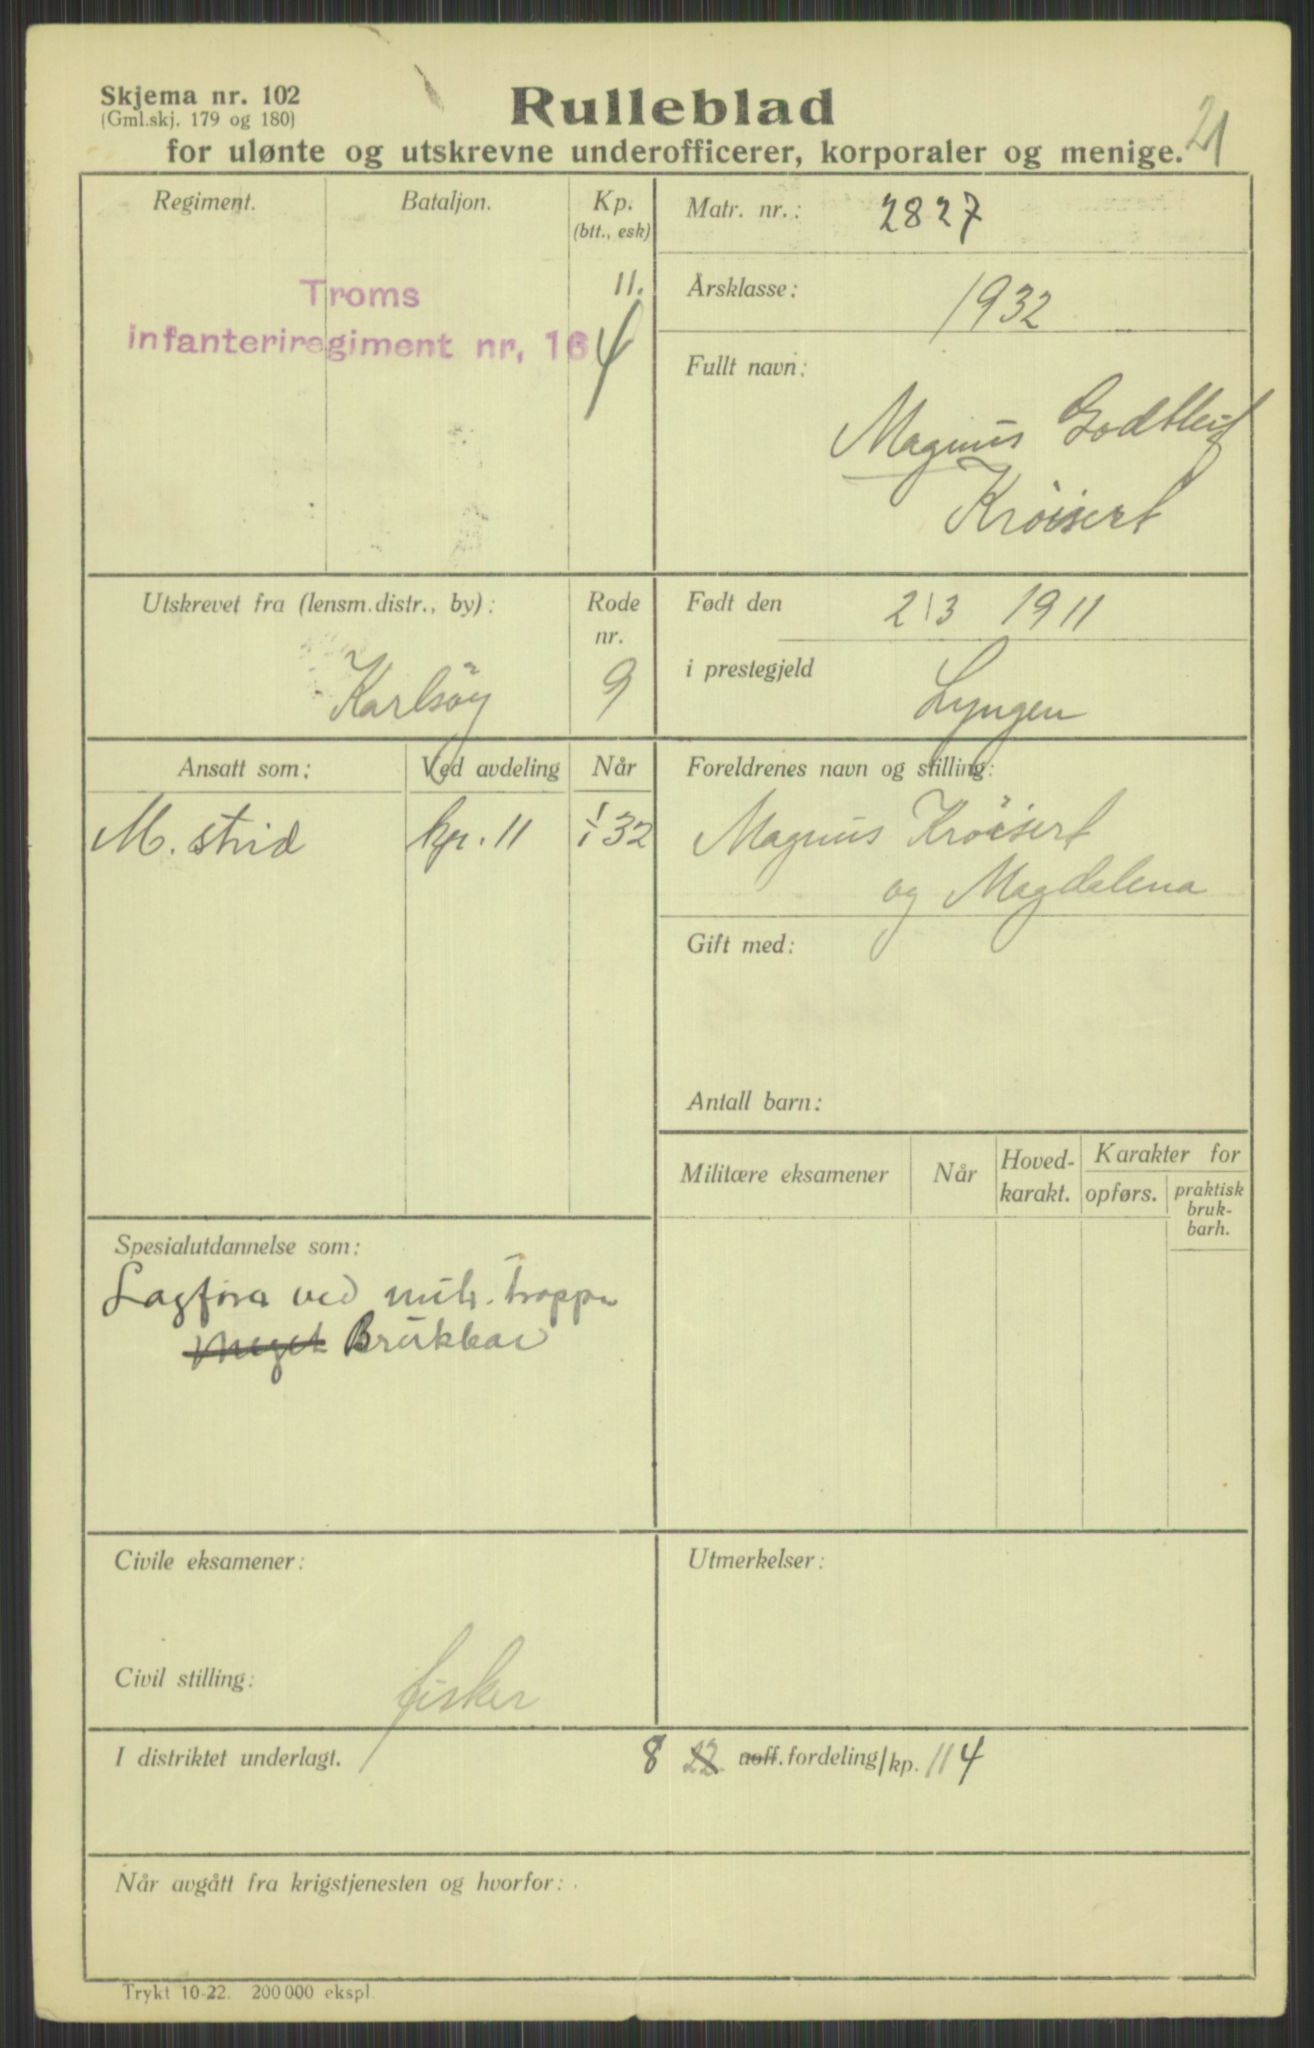 Skjema nr. 102
(Gml.skj. 179 og 180)
Rulleblad
21
for ulønte og utskrevne underofficerer, korporaler og menige.
Regiment. Bataljon. Kp.
(btt., esk)
Troms
infanteriregiment nr. 16
11.
4
Matr. nr.: 2827
Årsklasse: 1932
Fullt navn:
Magnus Godtleif
Kröisert
Utskrevet fra (lensm.distr., by): Rode
nr.
Karlsöy 9
Født den 2/3 1911
i prestegjeld Lyngen
Ansatt som: Ved avdeling Når
M. strid kp. 11 1/1 32
Foreldrenes navn og stilling:
Magnus Kröisert
og Magdalena
Gift med:
Antall barn:
Militære eksamener Når Hoved-
karakt. Karakter for
opførs. praktisk
bruk-
barh.
Spesialutdannelse som:
Lagfører ved mitr. tropp
meget Brukbar
Civile eksamener:
Utmerkelser:
Civil stilling: fisker
I distriktet underlagt. 8 22 uoff. fordeling/kp. 11 4
Når avgått fra krigstjenesten og hvorfor:
Trykt 10-22. 200 000 ekspl.